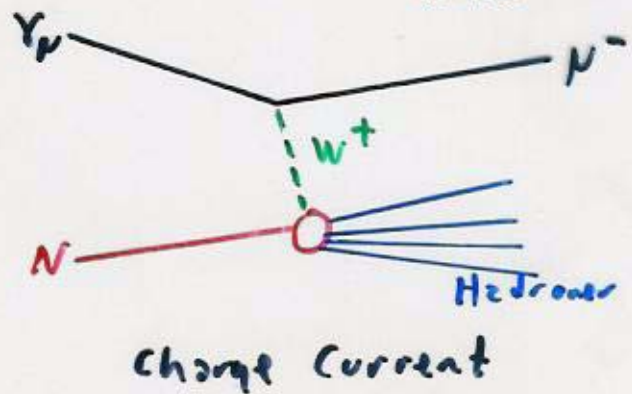 νμ
μ-
W+
N
Hadronen
Charge Current